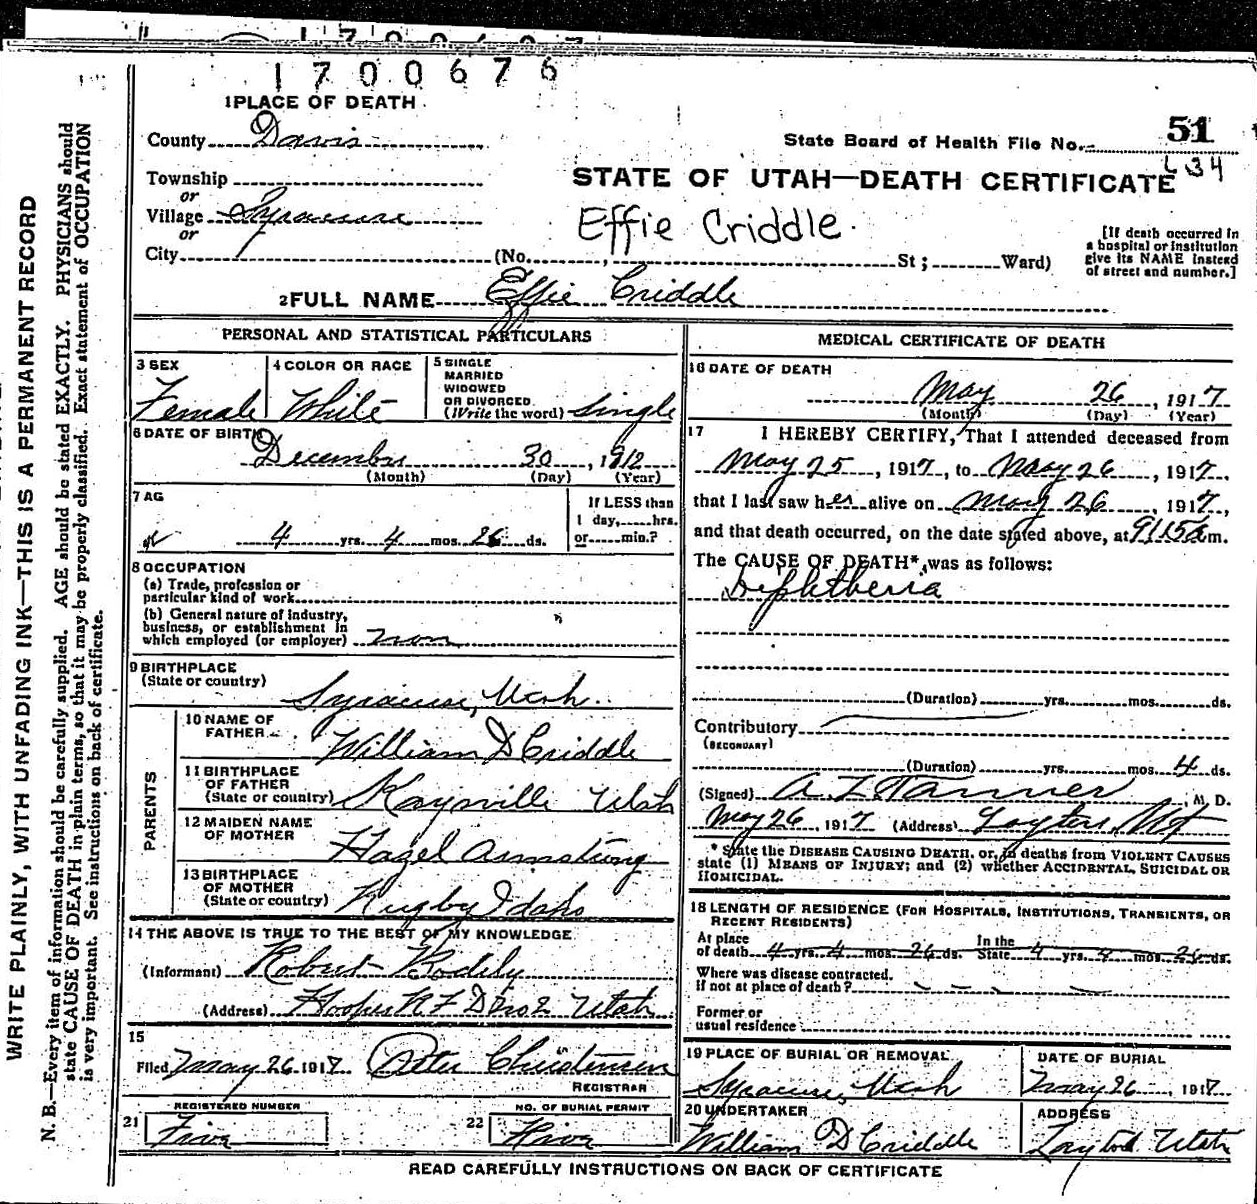 1700676
1 PLACE OF DEATH
County Davis
State Board of Health File No. 51
634
Township
or
Village Syracuse
or
City
STATE OF UTAH—DEATH CERTIFICATE
Effie Criddle
(No. , St ; Ward)
[If death occurred in
a hospital or institution
give its NAME instead
of street and number.]
2 FULL NAME Effie Criddle
PERSONAL AND STATISTICAL PARTICULARS
3 SEX
Female
4 COLOR OR RACE
White
5 SINGLE
MARRIED
WIDOWED
OR DIVORCED
(Write the word) Single
6 DATE OF BIRTH
December 30, 1912
(Month) (Day) (Year)
7 AG
4 yrs. 4 mos. 26 ds.
If LESS than
1 day, hrs.
or min.?
8 OCCUPATION
(a) Trade, profession or
particular kind of work
(b) General nature of industry,
business, or establishment in
which employed (or employer)
9 BIRTHPLACE
(State or country)
Syracuse, Utah.
PARENTS
10 NAME OF
FATHER
William D Criddle
11 BIRTHPLACE
OF FATHER
(State or country) Kaysville Utah
12 MAIDEN NAME
OF MOTHER
Hazel Armstrong
13 BIRTHPLACE
OF MOTHER
(State or country) Rugby Idaho
14 THE ABOVE IS TRUE TO THE BEST OF MY KNOWLEDGE
(Informant) Robert Bodily
(Address) Hooper R F D No 2 Utah
15
Filed May 26 1917 Peter Christensen
REGISTRAR
REGISTERED NUMBER
21 Five
NO. OF BURIAL PERMIT
22 Five
MEDICAL CERTIFICATE OF DEATH
16 DATE OF DEATH
May 26, 1917
(Month) (Day) (Year)
17 I HEREBY CERTIFY, That I attended deceased from
May 25, 1917, to May 26, 1917.
that I last saw her alive on May 26, 1917,
and that death occurred, on the date stated above, at 9115a m.
The CAUSE OF DEATH* was as follows:
Diphtheria
(Duration) yrs. mos. ds.
Contributory
(SECONDARY)
(Duration) yrs. mos. 4 ds.
(Signed) A. Z. Tanner, M. D.
May 26, 1917 (Address) Layton, Ut
* State the DISEASE CAUSING DEATH, or, in deaths from VIOLENT CAUSES
state (1) MEANS OF INJURY; and (2) whether ACCIDENTAL, SUICIDAL OR
HOMICIDAL.
18 LENGTH OF RESIDENCE (FOR HOSPITALS, INSTITUTIONS, TRANSIENTS, OR
RECENT RESIDENTS)
At place
of death 4 yrs. 4 mos. 26 ds. In the
State 4 yrs. 4 26 ds.
Where was disease contracted.
if not at place of death?
Former or
usual residence
19 PLACE OF BURIAL OR REMOVAL
Syracuse, Utah
DATE OF BURIAL
May 26 1917
20 UNDERTAKER
William D Criddle
ADDRESS
Layton Utah
READ CAREFULLY INSTRUCTIONS ON BACK OF CERTIFICATE
WRITE PLAINLY, WITH UNFADING INK—THIS IS A PERMANENT RECORD
N. B.—Every item of information should be carefully supplied. AGE should be stated EXACTLY. PHYSICIANS should
state CAUSE OF DEATH in plain terms, so that it may be properly classified. Exact statement of OCCUPATION
is very important. See instructions on back of certificate.